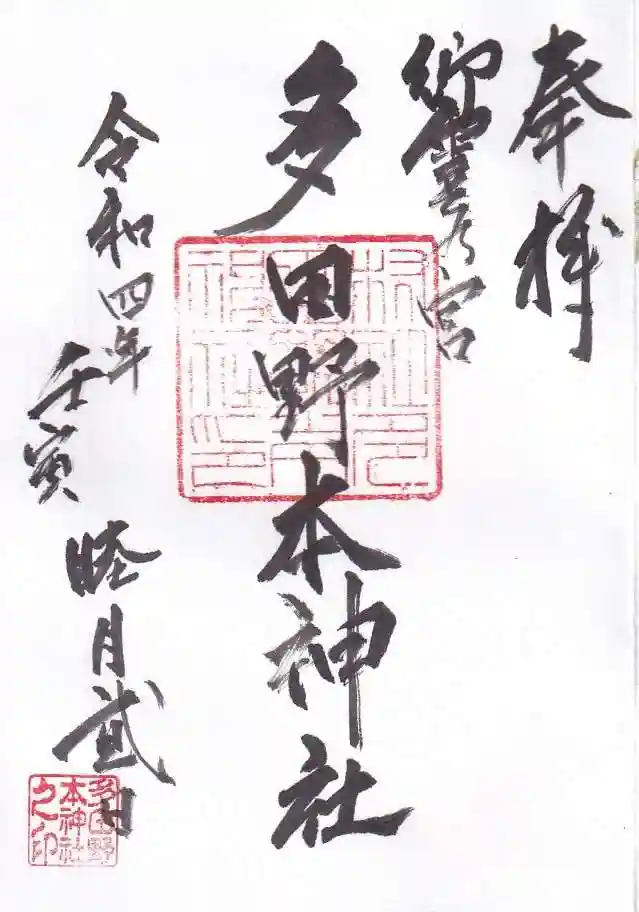 奉拝
御霊乃宮
多田野本神社
令和四年
壬寅
睦月弐日
多田野
本神社
之印